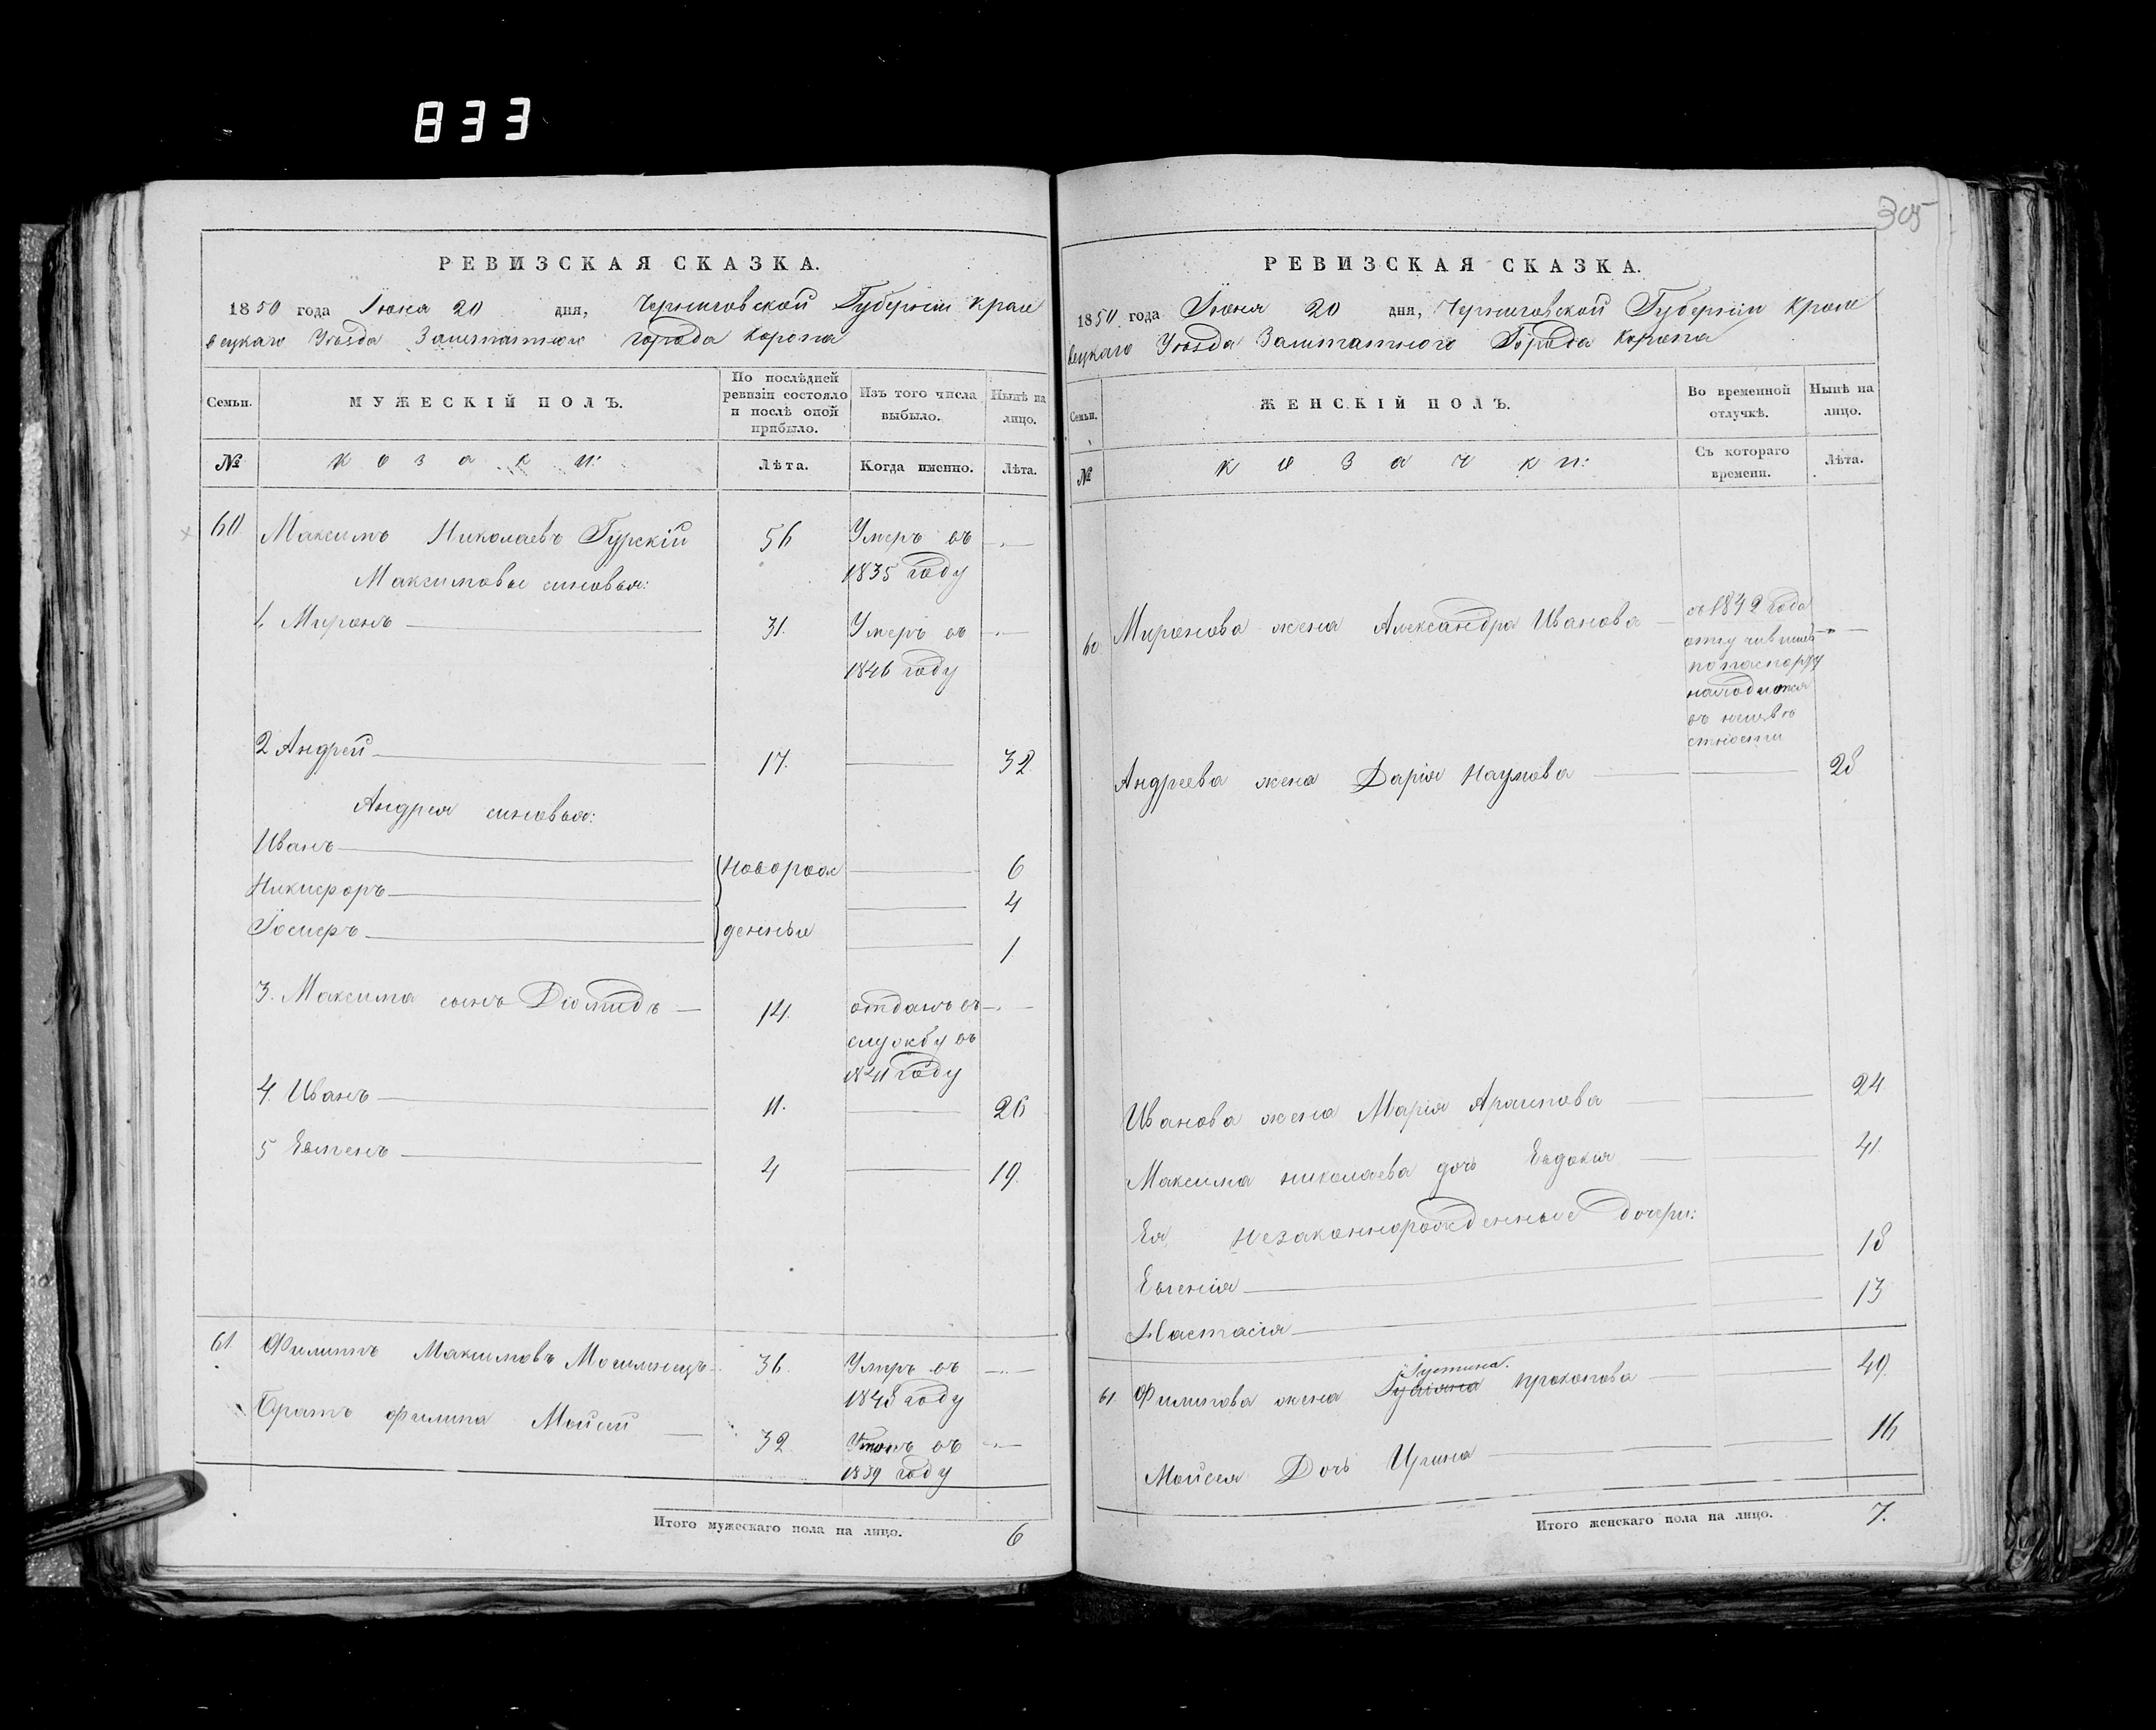 833
305
РЕВИЗСКАЯ СКАЗКА.
1850 года Іюня 20 дня, Черниговской Губерніи Кроле
вецкаго Уѣзда Заштатнаго города Коропа
Семьи.
МУЖЕСКІЙ ПОЛЪ.
По послѣдней ревизіи состояло и послѣ оной прибыло.
Изъ того числа выбыло.
Нынѣ на лицо.
№
козаки:
Лѣта.
Когда именно.
Лѣта.
60 Максимъ Николаевъ Гурскій 56 Умеръ въ
1835 году
Максимовы сыновья:
1. Миронъ 31. Умеръ въ
1846 году
2 Андрей 17. 32
Андрея сыновья:
Иванъ Новорож 6
Никифоръ 4
Іосифъ денные 1
3. Максима сынъ Діомидъ 14. отданъ въ
службу въ
1841 году
4. Иванъ 11. 26
5 Евменъ 4 19.
61. Филиппъ Максимовъ 36. Умеръ въ
1848 году
Братъ Филипа Мойсей 32. въ
1839 году
Итого мужескаго пола на лицо. 6
РЕВИЗСКАЯ СКАЗКА.
1850 года Іюня 20 дня, Черниговской Губерніи Кроле
вецкаго Уѣзда Заштатного Города Коропа
Семьи.
ЖЕНСКІЙ ПОЛЪ.
Во временной отлучкѣ.
Нынѣ на лицо.
№
козачки:
Съ котораго времени.
Лѣта.
60 Миронова жена Александра Иванова съ 1849 года
отлучившись
по паспорту
находится
въ неизвѣ
стности
Андреева жена Дарія Наумова 28
Иванова жена Марія Архипова 24
Максима Николаева дочь Евдокія 41.
Ея незаконнорожденные дочери:
Евгенія 18
Настасія 13
Іустина.
61. Филипова жена Прокопова 49.
Мойсея Дочь Ирина 16
Итого женскаго пола на лицо. 7.